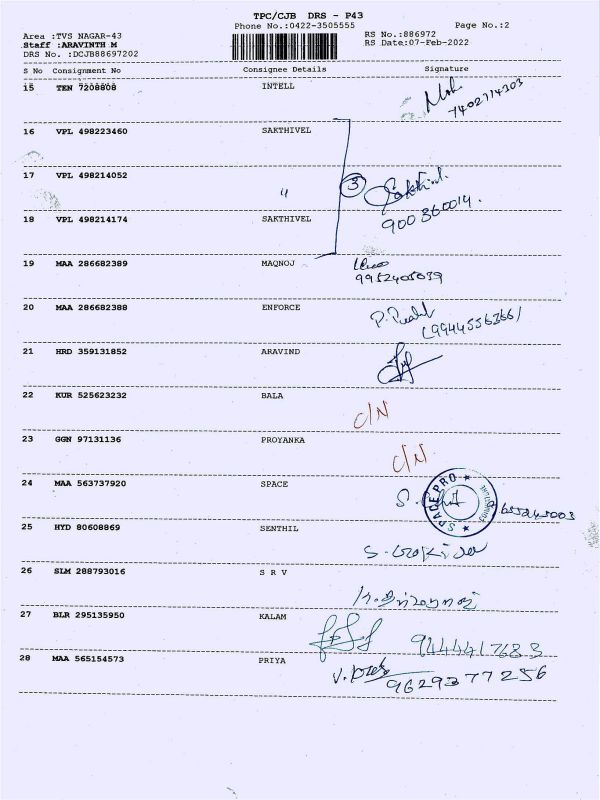 TPC/CJB DRS - P43
Phone No.:0422-3505555 Page No.:2
Area :TVS NAGAR-43 RS No.:886972
Staff :ARAVINTH M RS Date:07-Feb-2022
DRS No. :DCJB88697202
S No Consignment No Consignee Details Signature
15 TEN 7208808 INTELL
7402714303
16 VPL 498223460 SAKTHIVEL
17 VPL 498214052 〃 3
Sakthivel
18 VPL 498214174 SAKTHIVEL 900360014.
19 MAA 286682389 MAQNOJ
9952405039
20 MAA 286682388 ENFORCE
(9944556366)
21 HRD 359131852 ARAVIND
22 KUR 525623232 BALA
C/N
23 GGN 97131136 PROYANKA
C/N.
24 MAA 563737920 SPACE
SPACE PRO
25 HYD 80608869 SENTHIL
26 SLM 288793016 S R V
27 BLR 295135950 KALAM
9444417683
28 MAA 565154573 PRIYA
9629377256